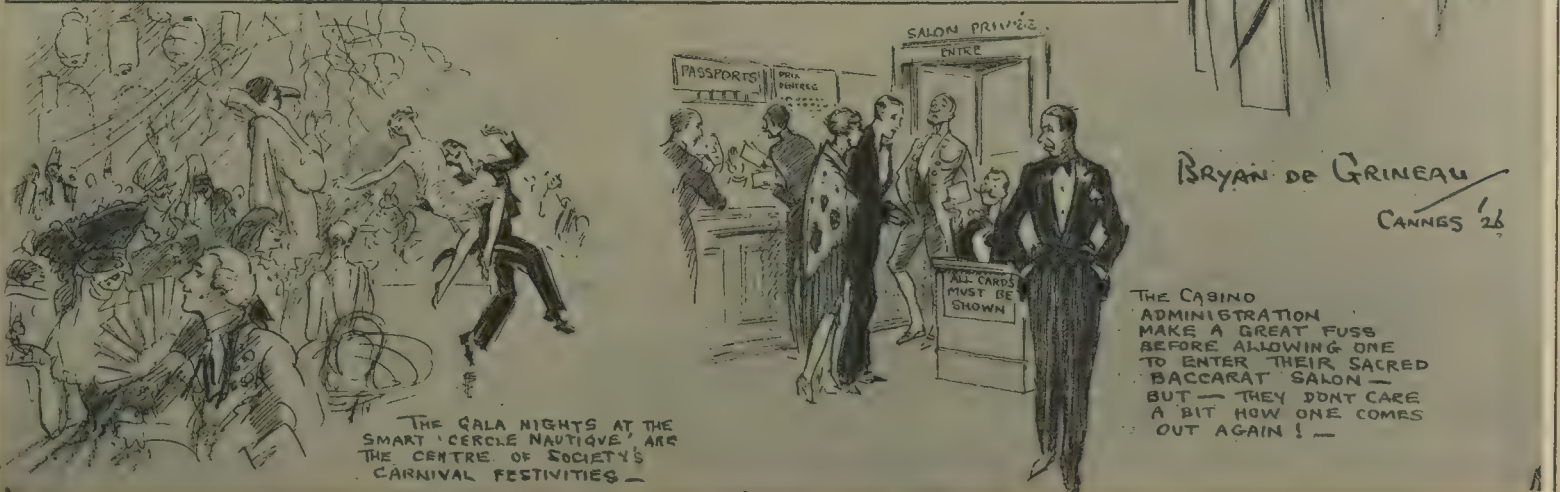 THE GALA NIGHTS AT THE
SMART 'CERCLE NAUTIQUE' ARE
THE CENTRE OF SOCIETY'S
CARNIVAL FESTIVITIES —
SALON PRIVÉE
ENTRE
PASSPORTS
PRIX
D'ENTREE
ALL CARDS
MUST BE
SHOWN
BRYAN DE GRINEAU
CANNES '26
THE CASINO
ADMINISTRATION
MAKE A GREAT FUSS
BEFORE ALLOWING ONE
TO ENTER THEIR SACRED
BACCARAT SALON —
BUT — THEY DONT CARE
A BIT HOW ONE COMES
OUT AGAIN! —